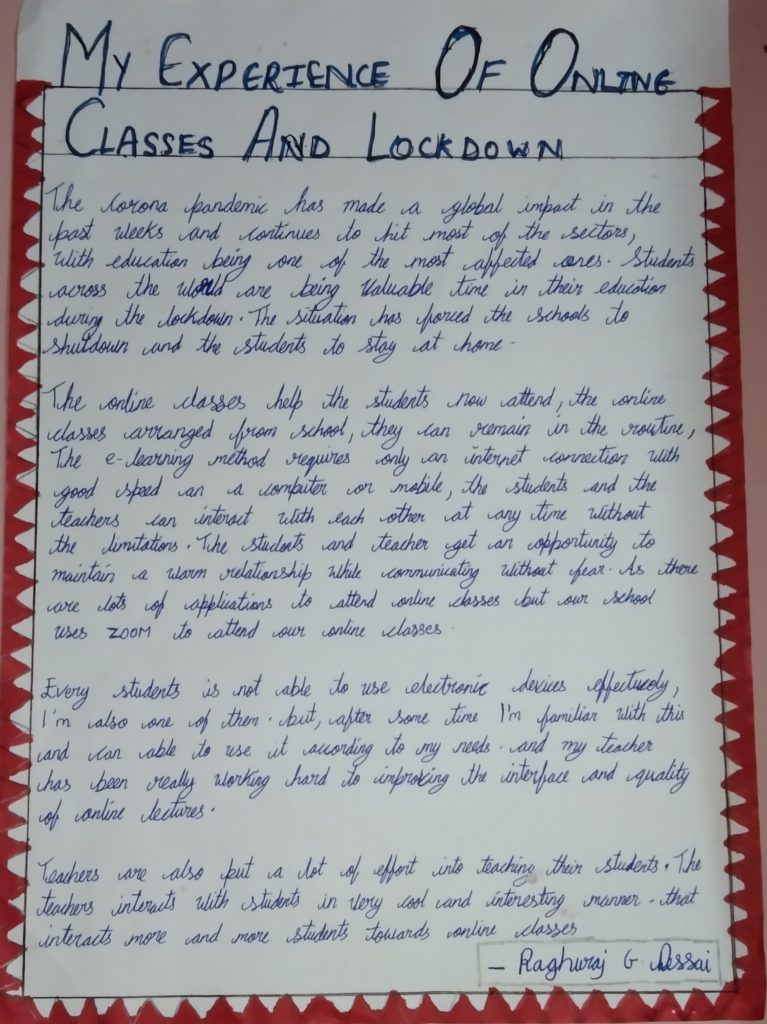 MY EXPERIENCE OF ONLINE
CLASSES AND LOCKDOWN
The corona pandemic has made a global impact in the
past weeks and continues to hit most of the sectors,
with education being one of the most affected ones. Students
across the world are being valuable time in their education
during the lockdown. The situation has forced the schools to
shutdown and the students to stay at home.
The online classes help the students now attend, the online
classes arranged from school, they can remain in the routine,
The e-learning method requires only an internet connection with
good speed an a computer or mobile, the students and the
teachers can interact with each other at any time without
the limitations. The students and teacher get an opportunity to
maintain a warm relationship while communicating without fear. As there
are lots of applications to attend online classes but our school
uses ZOOM to attend our online classes.
Every students is not able to use electronic devices effectively,
I'm also one of them. but, after some time I'm familiar with this
and can able to use it according to my needs. and my teacher
has been really working hard to improving the interface and quality
of online lectures.
Teachers are also put a lot of effort into teaching their students. The
teachers interacts with students in very cool and interesting manner. that
interacts more and more students towards online classes
- Raghuraj G Dessai